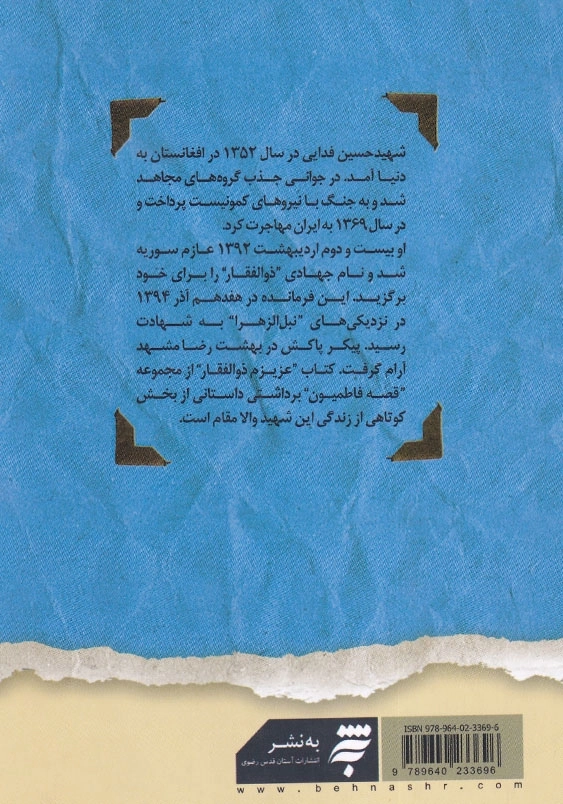 شهیدحسین فدایی در سال ۱۳۵۲ در افغانستان به
دنیا آمد. در جوانی جذب گروه‌های مجاهد
شد و به جنگ با نیروهای کمونیست پرداخت و
در سال ۱۳۶۹ به ایران مهاجرت کرد.
او بیست و دوم اردیبهشت ۱۳۹۲ عازم سوریه
شد و نام جهادی "ذوالفقار" را برای خود
برگزید. این فرمانده در هفدهم آذر ۱۳۹۴
در نزدیکی‌های "نبل‌الزهرا" به شهادت
رسید. پیکر پاکش در بهشت رضا مشهد
آرام گرفت. کتاب "عزیزم ذوالفقار" از مجموعه
"قصه فاطمیون" برداشتی داستانی از بخش
کوتاهی از زندگی این شهید والا مقام است.
به نشر
انتشارات آستان قدس رضوی
ISBN 978-964-02-3369-6
9 789640 233696
www.behnashr.com